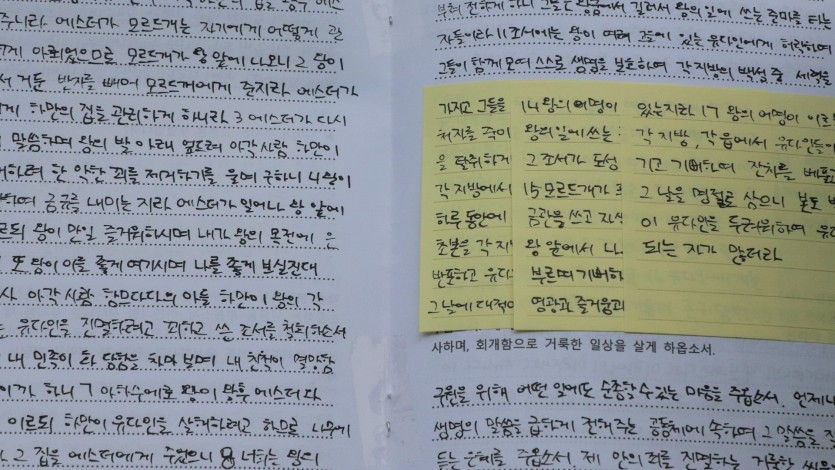 주니라 에스더가 모르드개는 자기에게 어떻게 관
게 아뢰었으므로 모르드개가 왕 앞에 나오니 2 왕이
서 거둔 반지를 빼어 모르드개에게 준지라 에스더가
게 하만의 집을 관리하게 하니라 3 에스더가 다시
말씀하며 왕의 발 아래 엎드려 아각 사람 하만이
하려 한 악한 꾀를 제거하기를 울며 구하니 4 왕이
하여 금규를 내미는지라 에스더가 일어나 왕 앞에
르되 왕이 만일 즐거워하시며 내가 왕의 목전에 은
또 왕이 이를 좋게 여기시며 나를 좋게 보실진대
사 아각 사람 함므다다의 아들 하만이 왕의 각
는 유다인을 진멸하려고 꾀하고 쓴 조서를 철회하소서
내 민족이 화 당함을 차마 보며 내 친척이 멸망함
이까 하니 7 아하수에로 왕이 왕후 에스더와
이르되 하만이 유다인을 살해하려고 하므로 나무에
그 집을 에스더에게 주었으니 8 너희는 왕의
부쳐 전하게 하니 그들은 왕궁에서 길러서 왕의 일에 쓰는 준마를 타는
자들이라 11 조서에는 왕이 여러 고을에 있는 유다인에게 허락하여
그들이 함께 모여 스스로 생명을 보호하여 각 지방의 백성 중 세력을
가지고 그들을
처자를 죽이
을 탈취하게
각 지방에서
하루 동안에
초본을 각 지방
반포하고 유다
그 날에 대적에
14 왕의 어명이
왕의 일에 쓰는
그 조서가 도성
15 모르드개가
금관을 쓰고 자색
왕 앞에서 나
부르며 기뻐하
영광과 즐거움과
있는지라 17 왕의 어명이 이르
각 지방, 각 읍에서 유다인들이
기고 기뻐하여 잔치를 베풀고
그 날을 명절로 삼으니 본토 백
이 유다인을 두려워하여 유다
되는 자가 많더라
사하며, 회개함으로 거룩한 일상을 살게 하옵소서.
구원을 위해 어떤 일에도 순종할 수 있는 마음을 주옵소서. 언제나
생명의 말씀을 급하게 전해주는 공동체에 속하여 그 말씀을 잘
듣는 은혜를 주옵소서 제 안의 적을 진멸하는 거룩한 싸움을